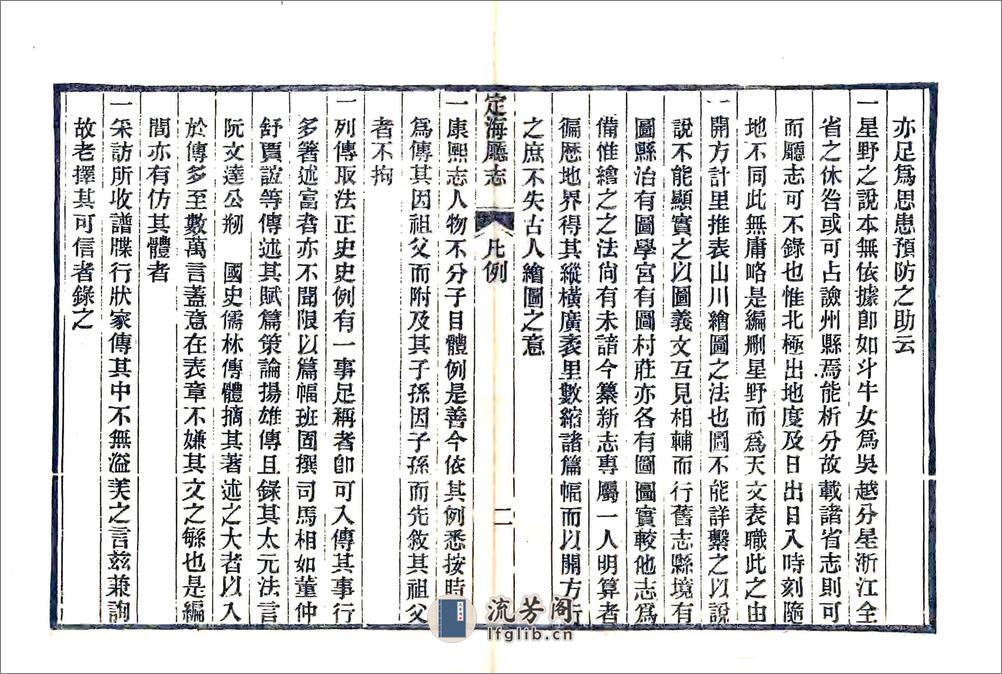 亦足爲思患預防之助云
一星野之說本無依據卽如斗牛女爲吳越分星浙江全
省之休咎或可占譣州縣焉能析分故載諸省志則可
而廳志可不錄也惟北極出地度及日出日入時刻隨
地不同此無庸略是編刪星野而爲天文表職此之由
一開方計里推表山川繪圖之法也圖不能詳繫之以說
說不能顯實之以圖義文互見相輔而行舊志縣境有
圖縣治有圖學宮有圖村莊亦各有圖圖實較他志爲
備惟繪之之法尙有未諳今纂新志專屬一人明算者
徧歷地界得其縱橫廣袤里數縮諸篇幅而以開方行
之庶不失古人繪圖之意
定海廳志 凡例 二
一康熙志人物不分子目體例是善今依其例悉按時
爲傳其因祖父而附及其子孫因子孫而先敘其祖父
者不拘
一列傳取法正史史例有一事足稱者卽可入傳其事行
多著述富者亦不聞限以篇幅班固撰司馬相如董仲
舒賈誼等傳述其賦篇策論揚雄傳且錄其太元法言
阮文達公剏 國史儒林傳體摘其著述之大者以入
於傳多至數萬言蓋意在表章不嫌其文之緐也是編
間亦有仿其體者
一采訪所收譜牒行狀家傳其中不無溢美之言茲兼詢
故老擇其可信者錄之
流芳阁
lfglib.cn